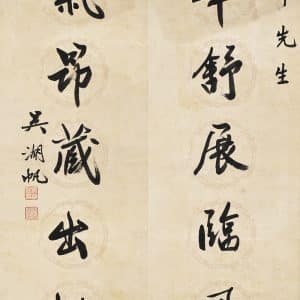 先生
舒展臨
氣昂藏出
吳湖帆